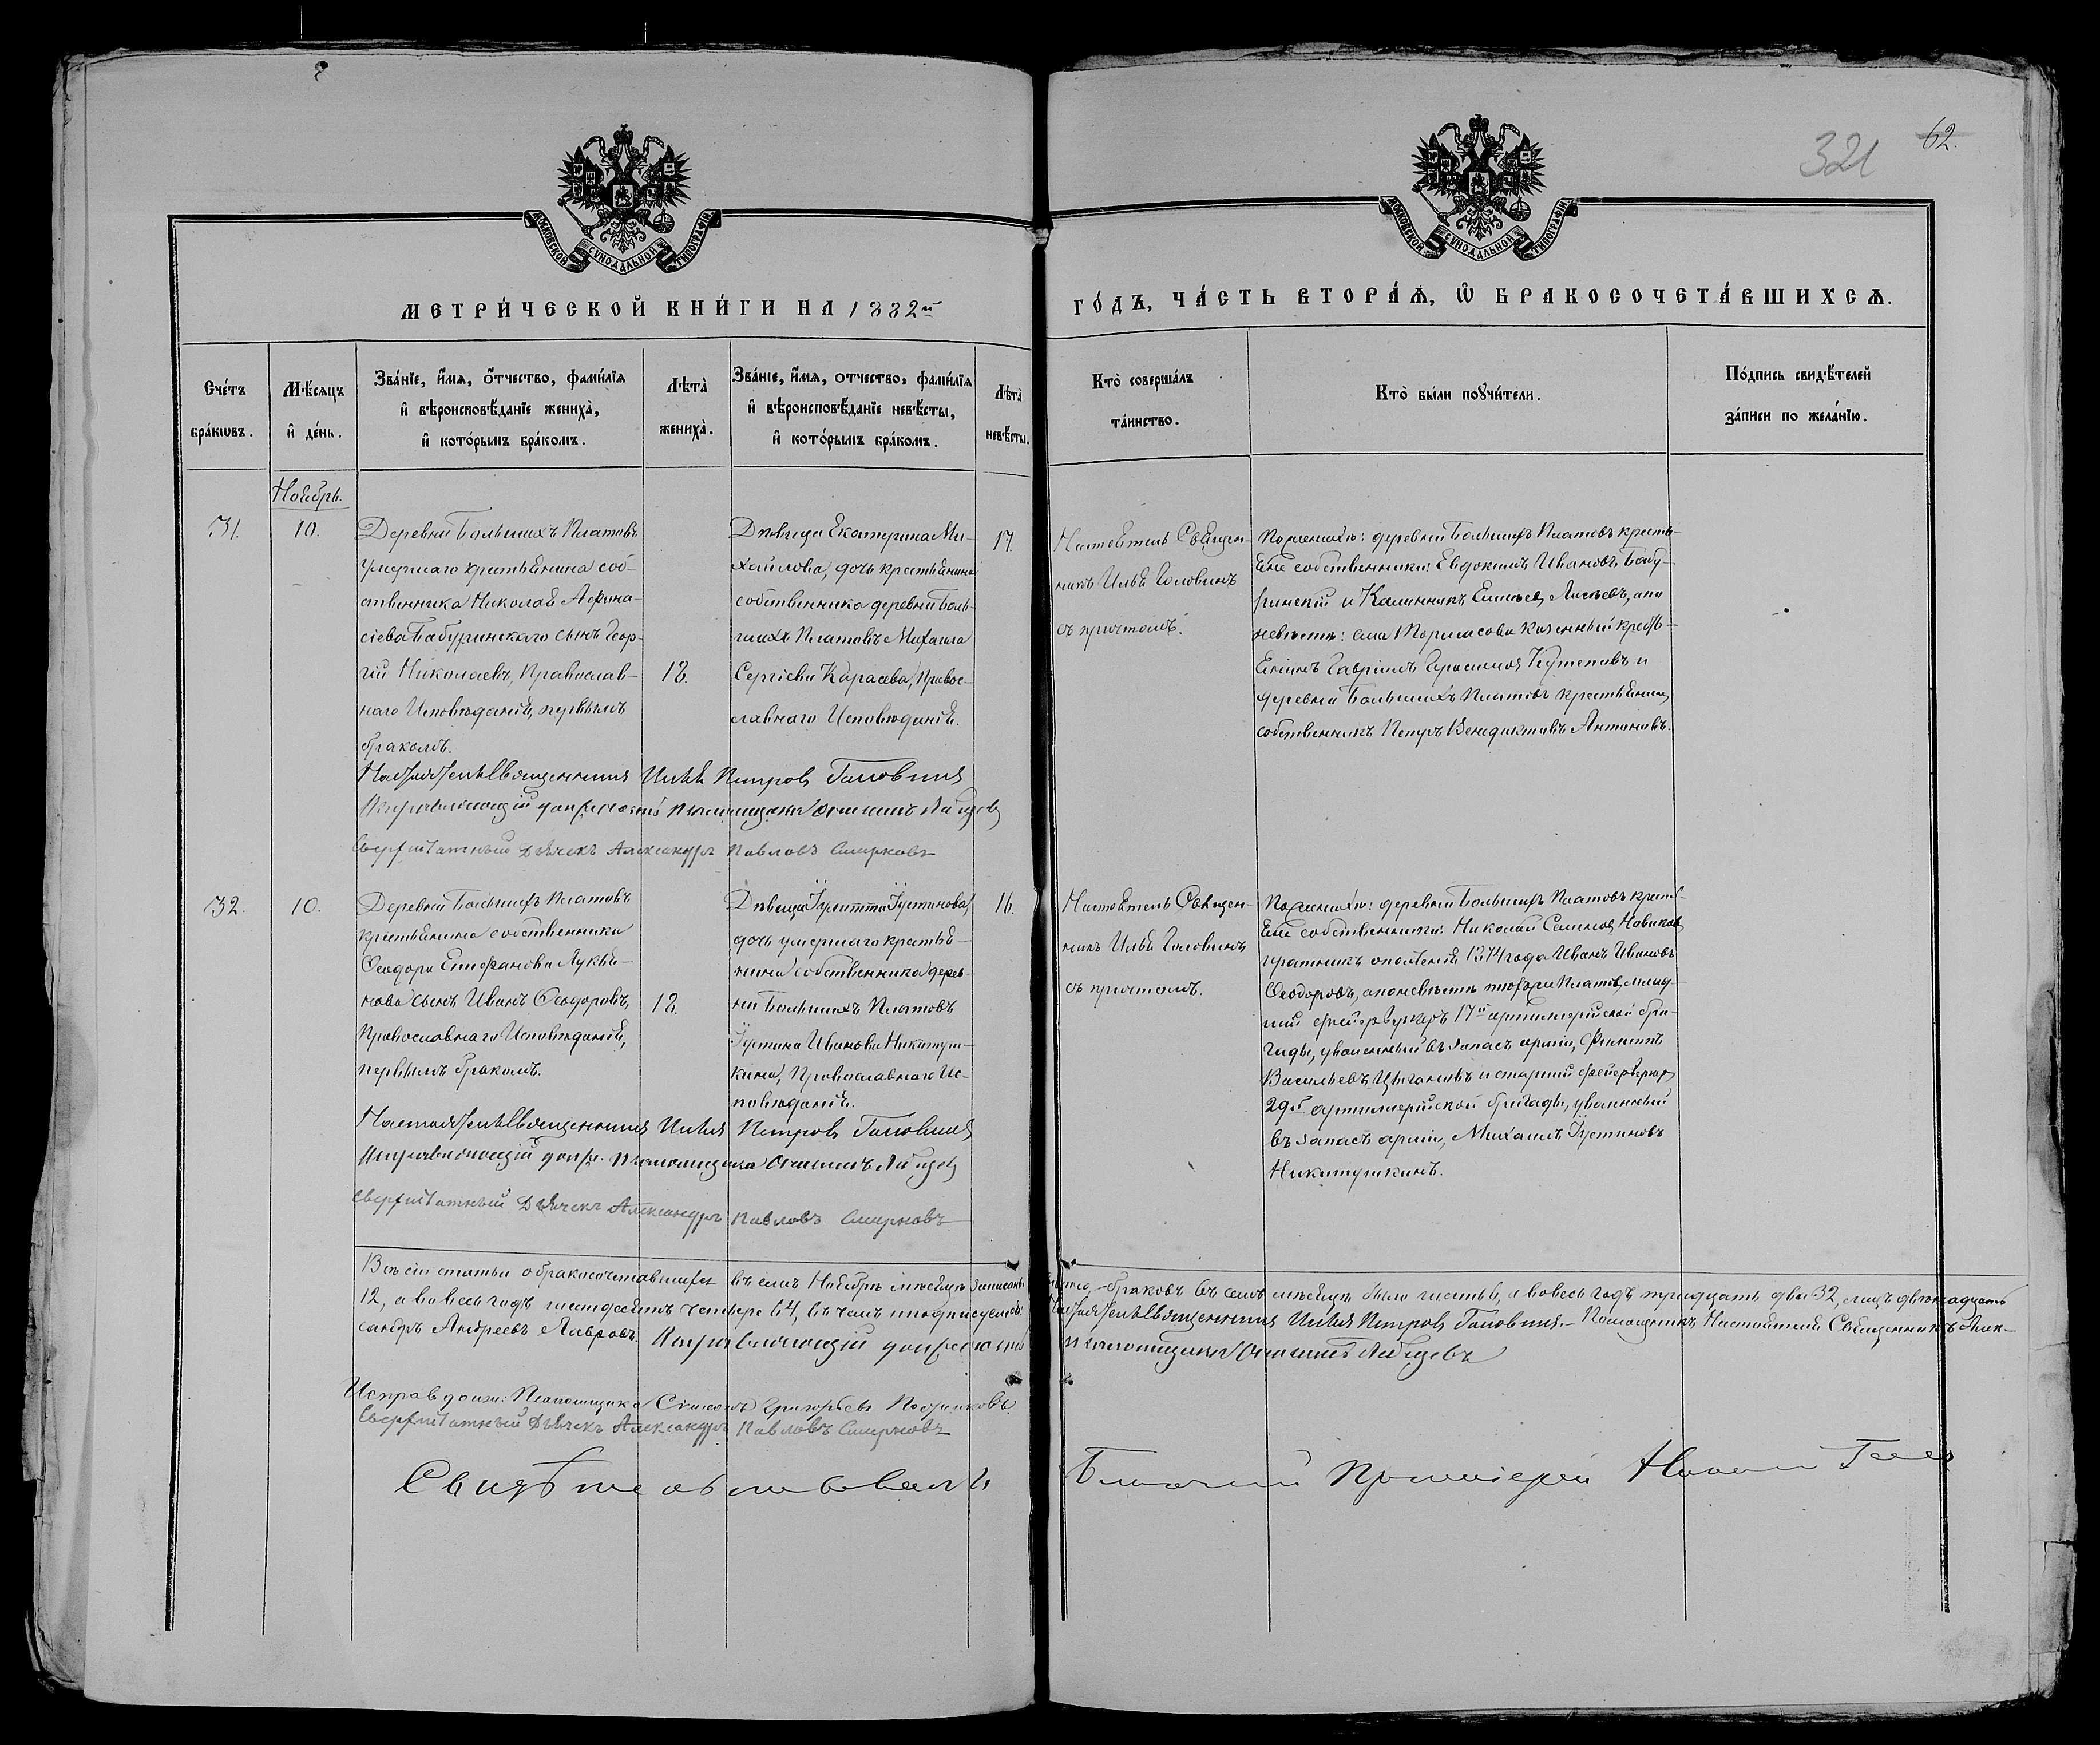 321
62.
МОСКОВСКОЙ СУНОДАЛЬНОЙ ТИПОГРАФІИ
МОСКОВСКОЙ СУНОДАЛЬНОЙ ТИПОГРАФІИ
МЕТРИ́ЧЕСКОЙ КНИ́ГИ НА 1882й
ГО́ДЪ, ЧА́СТЬ ВТОРА́Ѧ, Ѡ҆ БРАКОСОЧЕТА́ВШИХСѦ.
Сче́тъ
бра́кѡвъ.
Мѣ́сяцъ
и҆ де́нь.
Зва́нїе, и҆́мя, ѻ҆́тчество, фами́лїя
и҆ вѣроисповѣ́данїе жениха̀,
и҆ кото́рымъ бра́комъ.
Лѣта̀
жениха̀.
Зва́нїе, и҆́мя, отчество, фами́лїя
и҆ вѣроисповѣ́данїе невѣ́сты,
и҆ кото́рымъ бра́комъ.
Лѣта̀
невѣ́сты.
Кто̀ соверша́лъ
та́инство.
Кто̀ бы́ли поꙋчи́тели.
По́дпись свидѣ́телей
за́писи по жела́нїю.
Ноябрь.
31.
10.
Деревни Большихъ Платовъ
умершаго крестьянина соб-
ственника Николая Афана-
сіева Бабуринскаго сынъ Геор-
гій Николаевъ, Православ-
наго Исповѣданія, первымъ
бракомъ.
18.
Дѣвица Екатерина Ми-
хайлова, дочь крестьянина
собственника деревни Боль-
шихъ Платовъ Михаила
Сергіева Карасева, Право-
славнаго Исповѣданія.
17.
Настоятель Священ-
никъ Илья Головинъ
съ причтомъ.
По женихѣ: деревни Большихъ Платовъ кресть-
яне собственники: Евдокимъ Ивановъ Бабу-
ринскій и Калинникъ Лисѣевъ, а по
невѣстѣ: села казенный кресть-
янинъ Гавріилъ Герасимовъ и
деревни Большихъ Платовъ крестьянинъ
собственникъ Петръ Венедиктовъ Антоновъ.
Настоятель Священникъ Илья Петровъ Головинъ
Исправляющій должность псаломщика Лебедевъ
Сверхштатный Дьячекъ Александръ Павловъ Смирновъ
32.
10.
Деревни Большихъ Платовъ
крестьянина собственника
Ѳеодора Епифанова Лукья-
нова сынъ Иванъ Ѳеодоровъ,
Православнаго Исповѣданія,
первымъ бракомъ.
18.
Дѣвица Іулитта Іустинова,
дочь умершаго крестья-
нина собственника дерев-
ни Большихъ Платовъ
Іустина Иванова Никитуш-
кина, Православнаго Ис-
повѣданія.
16.
Настоятель Священ-
никъ Илья Головинъ
съ причтомъ.
По женихѣ: деревни Большихъ Платовъ кресть-
яне собственники: Николай Новиковъ,
ратникъ ополченія 1874 года Иванъ Ивановъ
Ѳеодоровъ, а по невѣстѣ Платовъ, млад-
шій фейерверкеръ 17й артиллерійской бри-
гады, уволенный въ запасъ арміи, Филиппъ
Васильевъ Цыгановъ и старшій фейерверкеръ
29й артиллерійской бригады, уволенный
въ запасъ арміи, Михаилъ Іустиновъ
Никитушкинъ.
Настоятель Священникъ Илья Петровъ Головинъ
Исправляющій долж. псаломщика Лебедевъ
Сверхштатный Дьячекъ Александръ Павловъ Смирновъ
Всѣ сіи статьи о бракосочетавшихся въ семъ Ноябрѣ мѣсяцѣ записаны браковъ въ семъ мѣсяцѣ было шесть 6, а во весь годъ тридцать два 32, лицъ двѣнадцать
12, а во весь годъ шестдесятъ четыре 64, въ чемъ и подписуемся: Настоятель Священникъ Илья Петровъ Головинъ.– Помощникъ Настоятеля Священникъ Алек-
сандръ Андреевъ Лавровъ Исправляющій должность псаломщика Лебедевъ
Исправ. долж: Псаломщика Симеонъ Григорьевъ
Сверхштатный Дьячекъ Александръ Павловъ Смирновъ
Свидѣтельствовалъ Благочинный Протоіерей